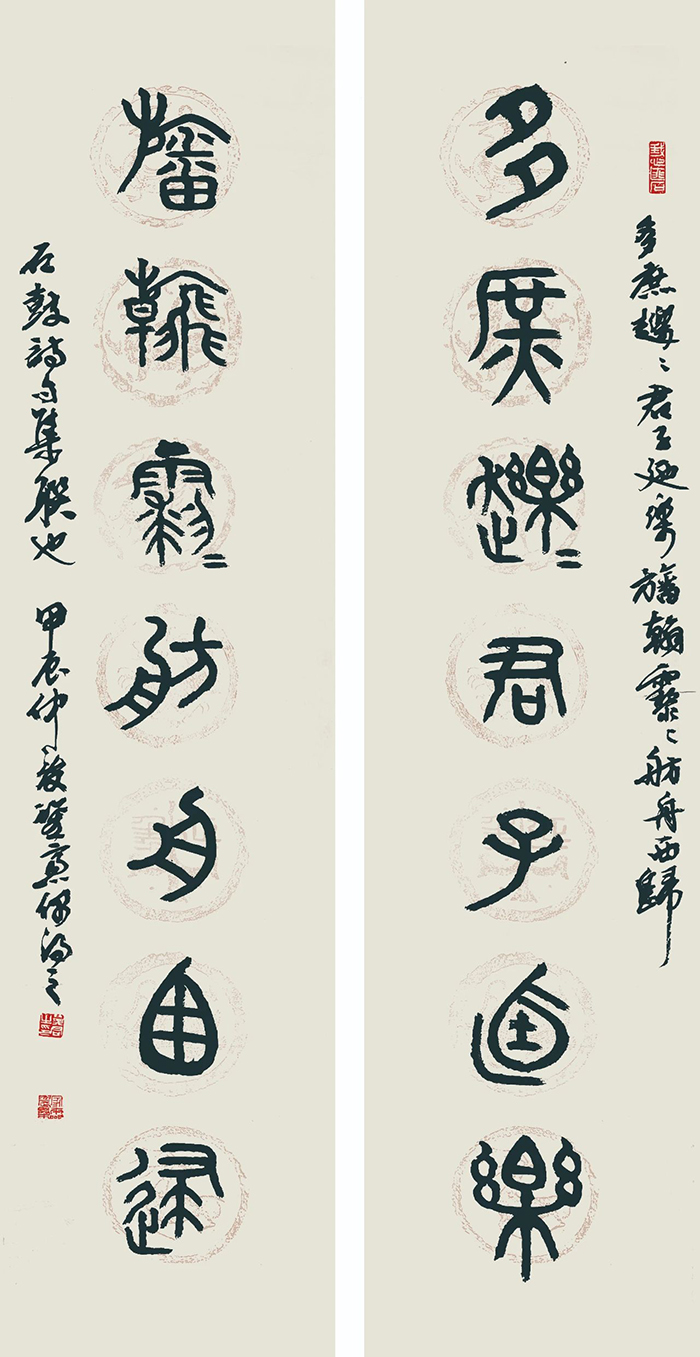 多庶䟏〻君子迺樂旛翰〻舫舟西歸
多庶䟏〻君子迺樂
旛翰〻舫舟西歸
石鼓詩句集聯也 甲辰仲